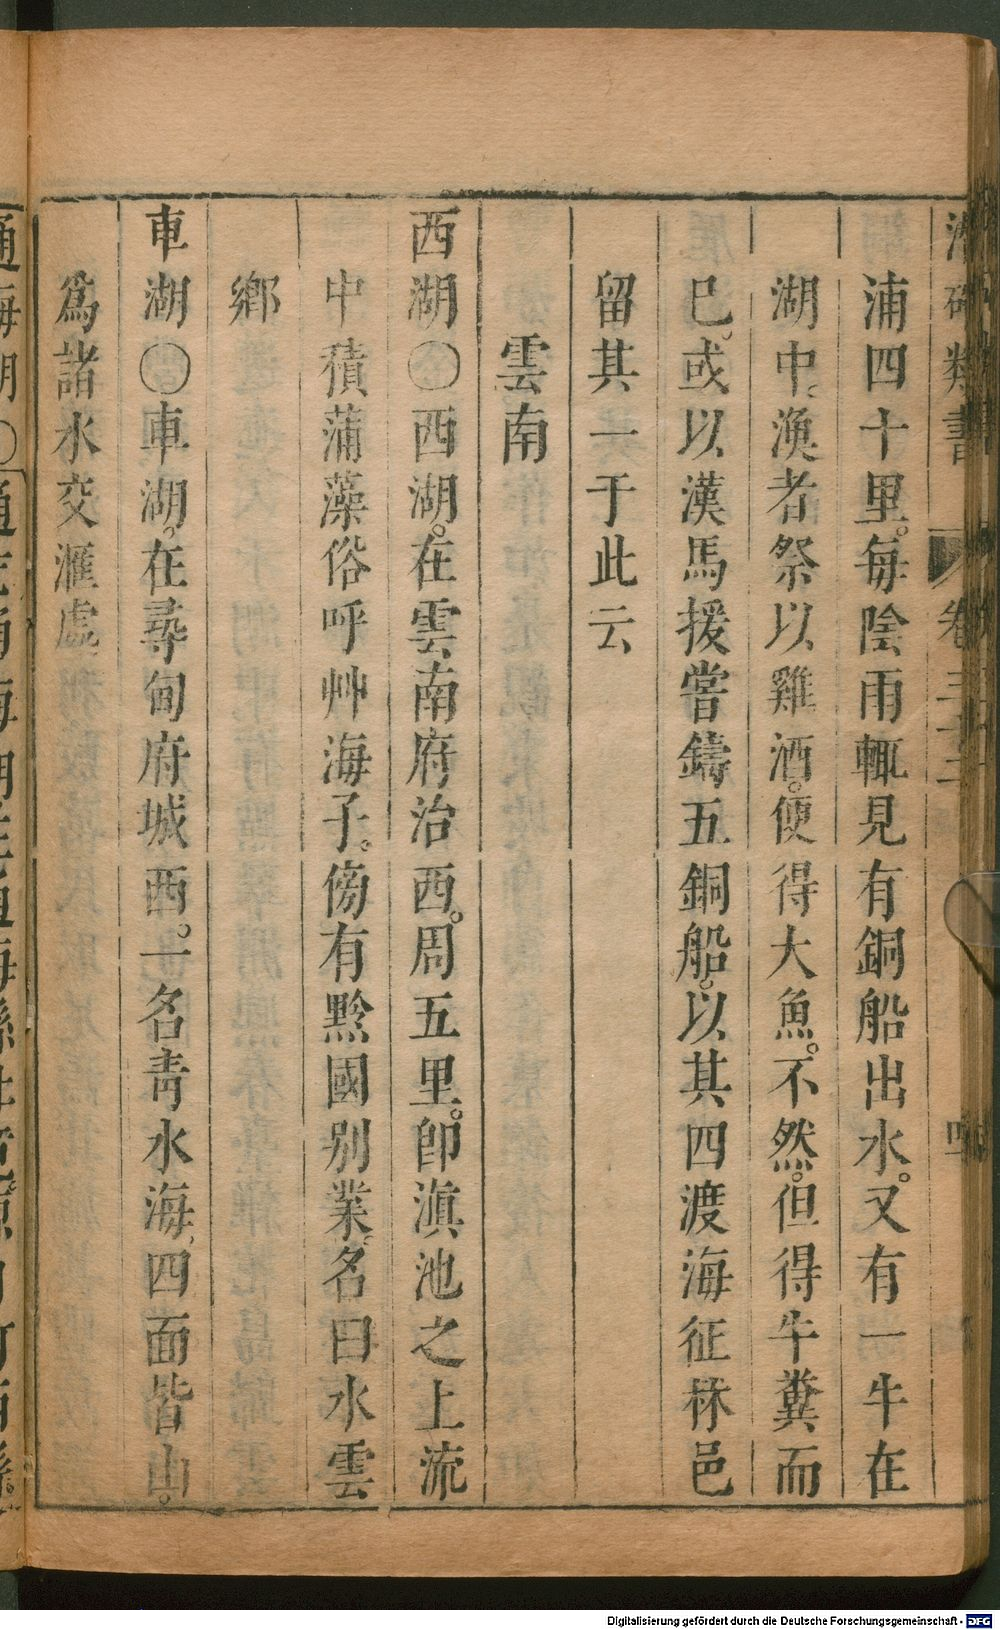 潛確類書 卷三十三 四
浦四十里。每陰雨輒見有銅船出水。又有一牛在
湖中。漁者祭以雞酒。便得大魚。不然。但得牛糞而
巳。或以漢馬援嘗鑄五銅船。以其四渡海征林邑
留其一于此云
雲南
西湖〇西湖。在雲南府治西。周五里。卽滇池之上流
中積蒲藻俗呼艸海子。傍有黔國別業。名曰水雲
鄉
車湖〇車湖。在尋甸府城西。一名青水海。四面皆山。
爲諸水交滙處
通海湖〇通
Digitalisierung gefördert durch die Deutsche Forschungsgemeinschaft - DFG